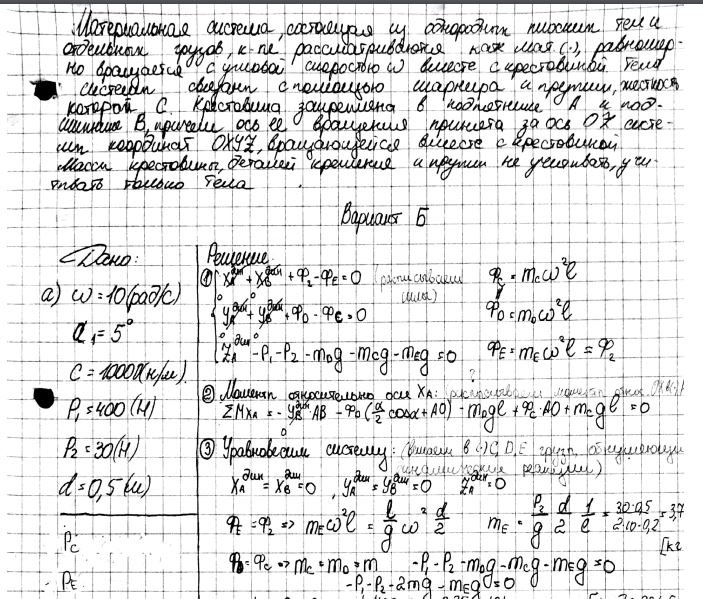 Материальная система, состоящая из однородных плоских тел и
отдельных грузов, к-пе рассматриваются как мат(·), равномер-
но вращается с угловой скоростью ω вместе с крестовиной. Тела
системы связаны с помощью шарнира и пружин, жесткость
которой C. Крестовина закреплена в подпятнике A и под-
шипнике B, причем ось ее вращения принята за ось OZ систе-
мы координат OXYZ, вращающейся вместе с крестовиной.
Массы крестовины, деталей крепления и пружин не учитывать, учи-
тывать только тела
Вариант Б
Дано:
а) ω=10(рад/с)
α₁=5°
C=1000(н/м).
P₁=400(Н)
P₂=30(Н)
d=0,5(м)
P_C
P_E
Решение
① X_A^дин + X_B^дин + Φ₂ - Φ_E = 0 (расписываем силы) Φ_C = m_C ω² l
y_A^дин + y_B^дин + Φ_D - Φ_C = 0 Φ_D = m_D ω² l
Z_A^дин - P₁ - P₂ - m_D g - m_C g - m_E g = 0 Φ_E = m_E ω² l = Φ₂
② Моменты относительно оси X_A: расписываем моменты относ.
ΣM_XA = - y_B^дин · AB - Φ_D( cosα + AO) - m_D g l + Φ_C · AO + m_C g l = 0
③ Уравновесим систему: (в (·) C, D, E грузы,
динамические реакции)
X_A^дин = X_B^дин = 0, y_A^дин = y_B^дин = 0 Z_A^дин = 0
Φ_E = Φ₂ => m_E ω² l = /g ω² d/2 m_E = P₂/g d/2 1/l = 30·0,5/2·10·0,2 = 3,7
[кг
Φ_D = Φ_C => m_C = m_D = m -P₁ - P₂ - m_D g - m_C g - m_E g = 0
-P₁ - P₂ - 2mg - m_E g = 0